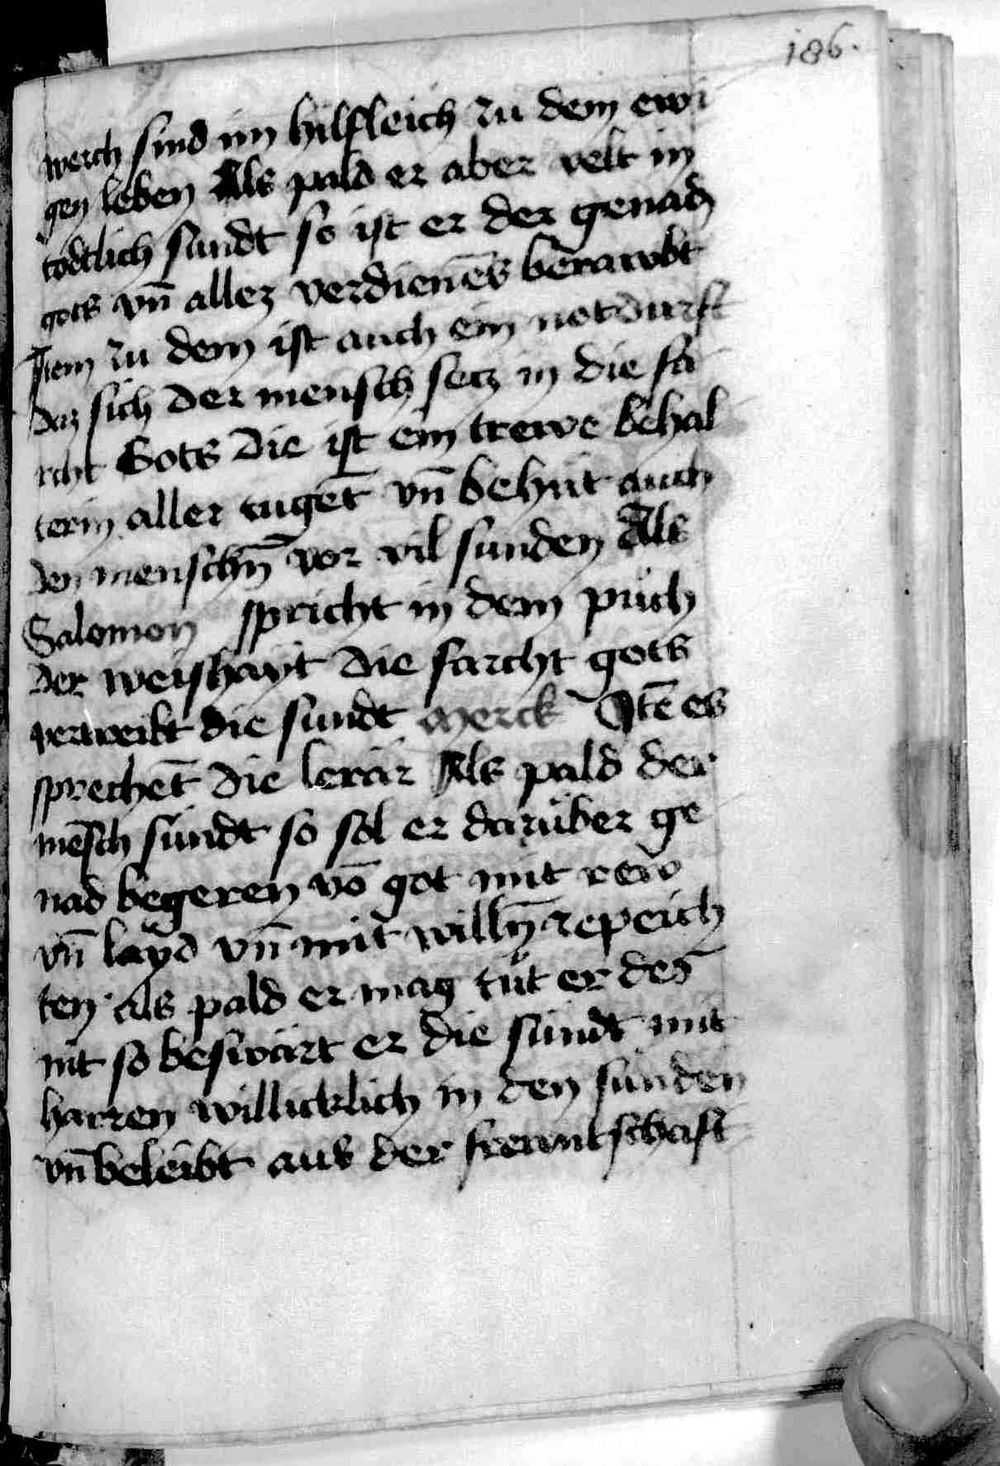 186.
werch sind im hilfleich zu dem ewi
gen leben Als pald er aber velt in
todtlich sundt so ist er der genadn
gots vn̄ allez verdienēs berawbt
Item zu dem ist auch ein notdurft
daz sich der mensch secz in die fa
rcht Gots die ist ein trewe behal
terin aller tugēt vn̄ behüt auch
den menschn̄ vor vil sunden Als
Salomon spricht in dem püch
der weishayt die farcht gots
vertreibt die sundt Merck Itē es
sprechēt die lerär Als pald der
mēsch sündt so sol er darüber ge
nad begeren vō got mit rew
vn̄ layd vn̄ mit willn̄ ze peich
ten als pald er mag tüt er des
nit so beswärt er die sündt mit
harren willicklich in den sünden
vn̄ beleibt aus der frewntschaft